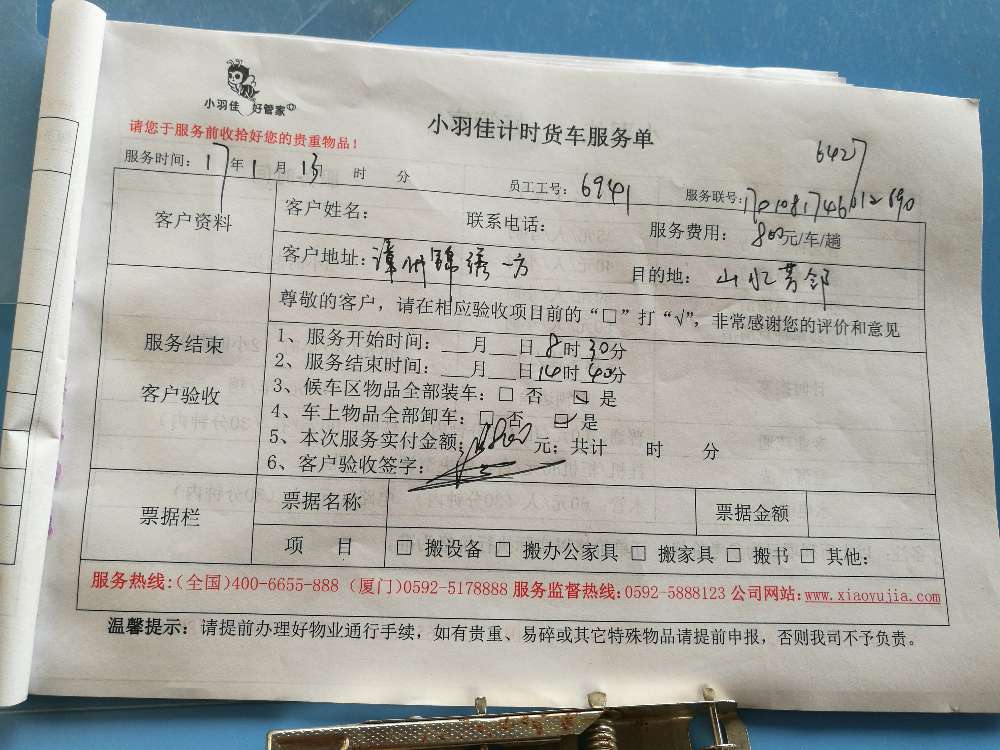 小羽佳 好管家
小羽佳计时货车服务单
6427
请您于服务前收拾好您的贵重物品！
服务时间：17年1月13 时 分 员工工号：6941 服务联号：
客户资料
客户姓名： 联系电话： 服务费用：800元/车/趟
客户地址：漳州锦绣一方 目的地：山水芳邻
服务结束
客户验收
尊敬的客户，请在相应验收项目前的“□”打“√”，非常感谢您的评价和意见
1、服务开始时间：__月__日8时30分
2、服务结束时间：__月__日14时40分
3、候车区物品全部装车：□ 否 ☑ 是
4、车上物品全部卸车：□ 否 ☑ 是
5、本次服务实付金额：1800元；共计 时 分
6、客户验收签字：
票据栏
票据名称 票据金额
项 目 □ 搬设备 □ 搬办公家具 □ 搬家具 □ 搬书 □ 其他：
服务热线：（全国）400-6655-888（厦门）0592-5178888 服务监督热线：0592-5888123 公司网站：www.xiaoyujia.com
温馨提示：请提前办理好物业通行手续，如有贵重、易碎或其它特殊物品请提前申报，否则我司不予负责。